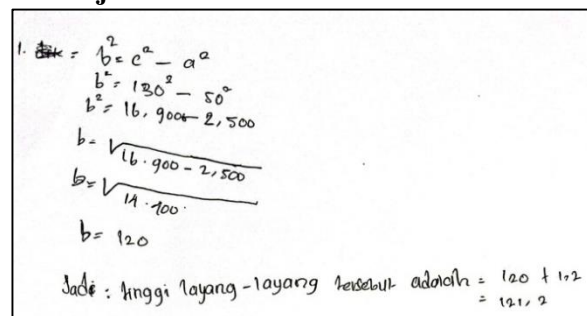 1. = b² = c² - a²
b² = 130² - 50²
b² = 16.900 - 2,500
b = √16.900 - 2,500
b = √14.400.
b = 120
Jadi : tinggi layang-layang tersebut adalah = 120 + 1,2
= 121,2